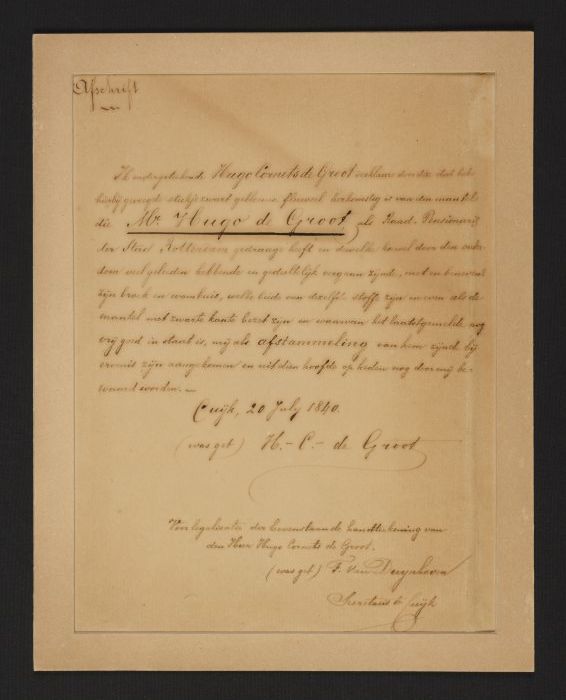 Afschrift
Ik ondergeteekende Hugo Cornets de Groot verklaare dan dit stuk
hierbij gevoegd stukje zwart gebloemd fluweel herkomstig is van den mantel
die Mr. Hugo de Groot als Raad-Pensionaris
der Stad Rotterdam gedragen heeft en dewelke hoewel door den ouder-
dom veel geleden hebbende en gedeeltelijk vergaan zijnde, met en benevens
zijn broek en wambuis, welke beide van dezelfde stoffe zijn en even als de
mantel met zwarte kante bezet zijn en waarvan het laatstgemelde nog
vrij goed in staat is, mij als afstammeling van hem zijnde bij
erfenis zijn aangekomen en uit dien hoofde op heden nog door mij be-
waard worden.
Cuijk, 20 July 1840.
(was get) H.- C.- de Groot
Voor legalisatie der bovenstaande handteekening van
den Heer Hugo Cornets de Groot.
(was get) F. van Duynhoven
Secretaris te Cuijk